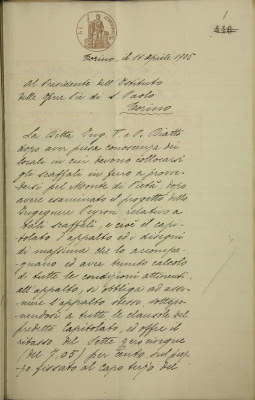 1
410
Torino, il 14 Aprile 1905
Al Presidente dell'Istituto
delle Opere Pie di S. Paolo
Torino
La Ditta Ing. V. e P.
dopo aver presa conoscenza dei
locali in cui devono collocarsi
gli scaffali in ferro a provve-
dersi pel Monte di Pietà, dopo
avere esaminato il progetto dello
Ingegnere Peyron relativo a
tali scaffali, e cioè il capi-
tolato d'appalto ed i disegni
di massima che lo accompa-
gnano ed aver tenuto calcolo
di tutte le condizioni attinenti
all'appalto, si obbliga ad assu-
mere l'appalto stesso sottopo-
nendosi a tutte le clausole del
predetto Capitolato, ed offre il
ribasso del sette zero cinque
(del 7,05) per cento sul prez-
zo fissato al capo terzo del